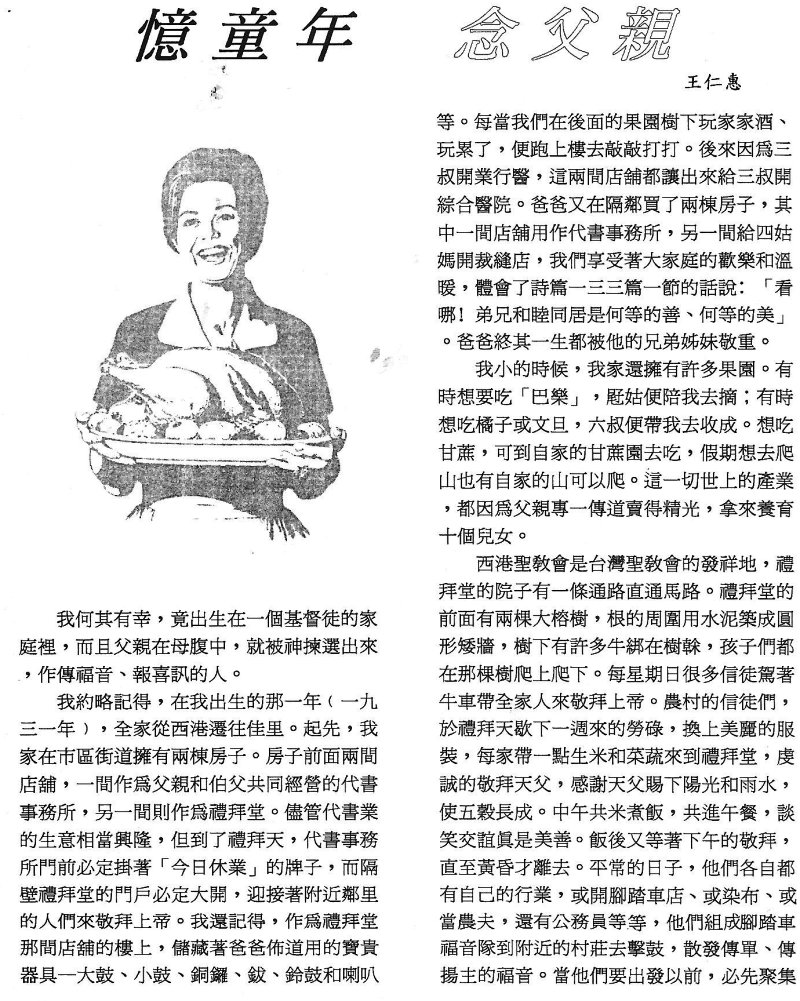 憶童年 念父親
王仁惠
我何其有幸，竟出生在一個基督徒的家
庭裡，而且父親在母腹中，就被神揀選出來
，作傳福音、報喜訊的人。
我約略記得，在我出生的那一年﹙一九
三一年﹚，全家從西港遷往佳里。起先，我
家在市區街道擁有兩棟房子。房子前面兩間
店舖，一間作爲父親和伯父共同經營的代書
事務所，另一間則作爲禮拜堂。儘管代書業
的生意相當興隆，但到了禮拜天，代書事務
所門前必定掛著「今日休業」的牌子，而隔
壁禮拜堂的門戶必定大開，迎接著附近鄰里
的人們來敬拜上帝。我還記得，作爲禮拜堂
那間店舖的樓上，儲藏著爸爸佈道用的寶貴
器具—大鼓、小鼓、銅鑼、鈸、鈴鼓和喇叭
等。每當我們在後面的果園樹下玩家家酒、
玩累了，便跑上樓去敲敲打打。後來因爲三
叔開業行醫，這兩間店舖都讓出來給三叔開
綜合醫院。爸爸又在隔鄰買了兩棟房子，其
中一間店舖用作代書事務所，另一間給四姑
媽開裁縫店，我們享受著大家庭的歡樂和溫
暖，體會了詩篇一三三篇一節的話說：「看
哪！弟兄和睦同居是何等的善、何等的美」
。爸爸終其一生都被他的兄弟姊妹敬重。
我小的時候，我家還擁有許多果園。有
時想要吃「巴樂」，屘姑便陪我去摘；有時
想吃橘子或文旦，六叔便帶我去收成。想吃
甘蔗，可到自家的甘蔗園去吃，假期想去爬
山也有自家的山可以爬。這一切世上的產業
，都因爲父親專一傳道賣得精光，拿來養育
十個兒女。
西港聖敎會是台灣聖敎會的發祥地，禮
拜堂的院子有一條通路直通馬路。禮拜堂的
前面有兩棵大榕樹，根的周圍用水泥築成圓
形矮牆，樹下有許多牛綁在樹榦，孩子們都
在那棵樹爬上爬下。每星期日很多信徒駕著
牛車帶全家人來敬拜上帝。農村的信徒們，
於禮拜天歇下一週來的勞碌，換上美麗的服
裝，每家帶一點生米和菜蔬來到禮拜堂，虔
誠的敬拜天父，感謝天父賜下陽光和雨水，
使五穀長成。中午共米煮飯，共進午餐，談
笑交誼眞是美善。飯後又等著下午的敬拜，
直至黃昏才離去。平常的日子，他們各自都
有自己的行業，或開腳踏車店、或染布、或
當農夫，還有公務員等等，他們組成腳踏車
福音隊到附近的村莊去擊鼓，散發傳單、傳
揚主的福音。當他們要出發以前，必先聚集